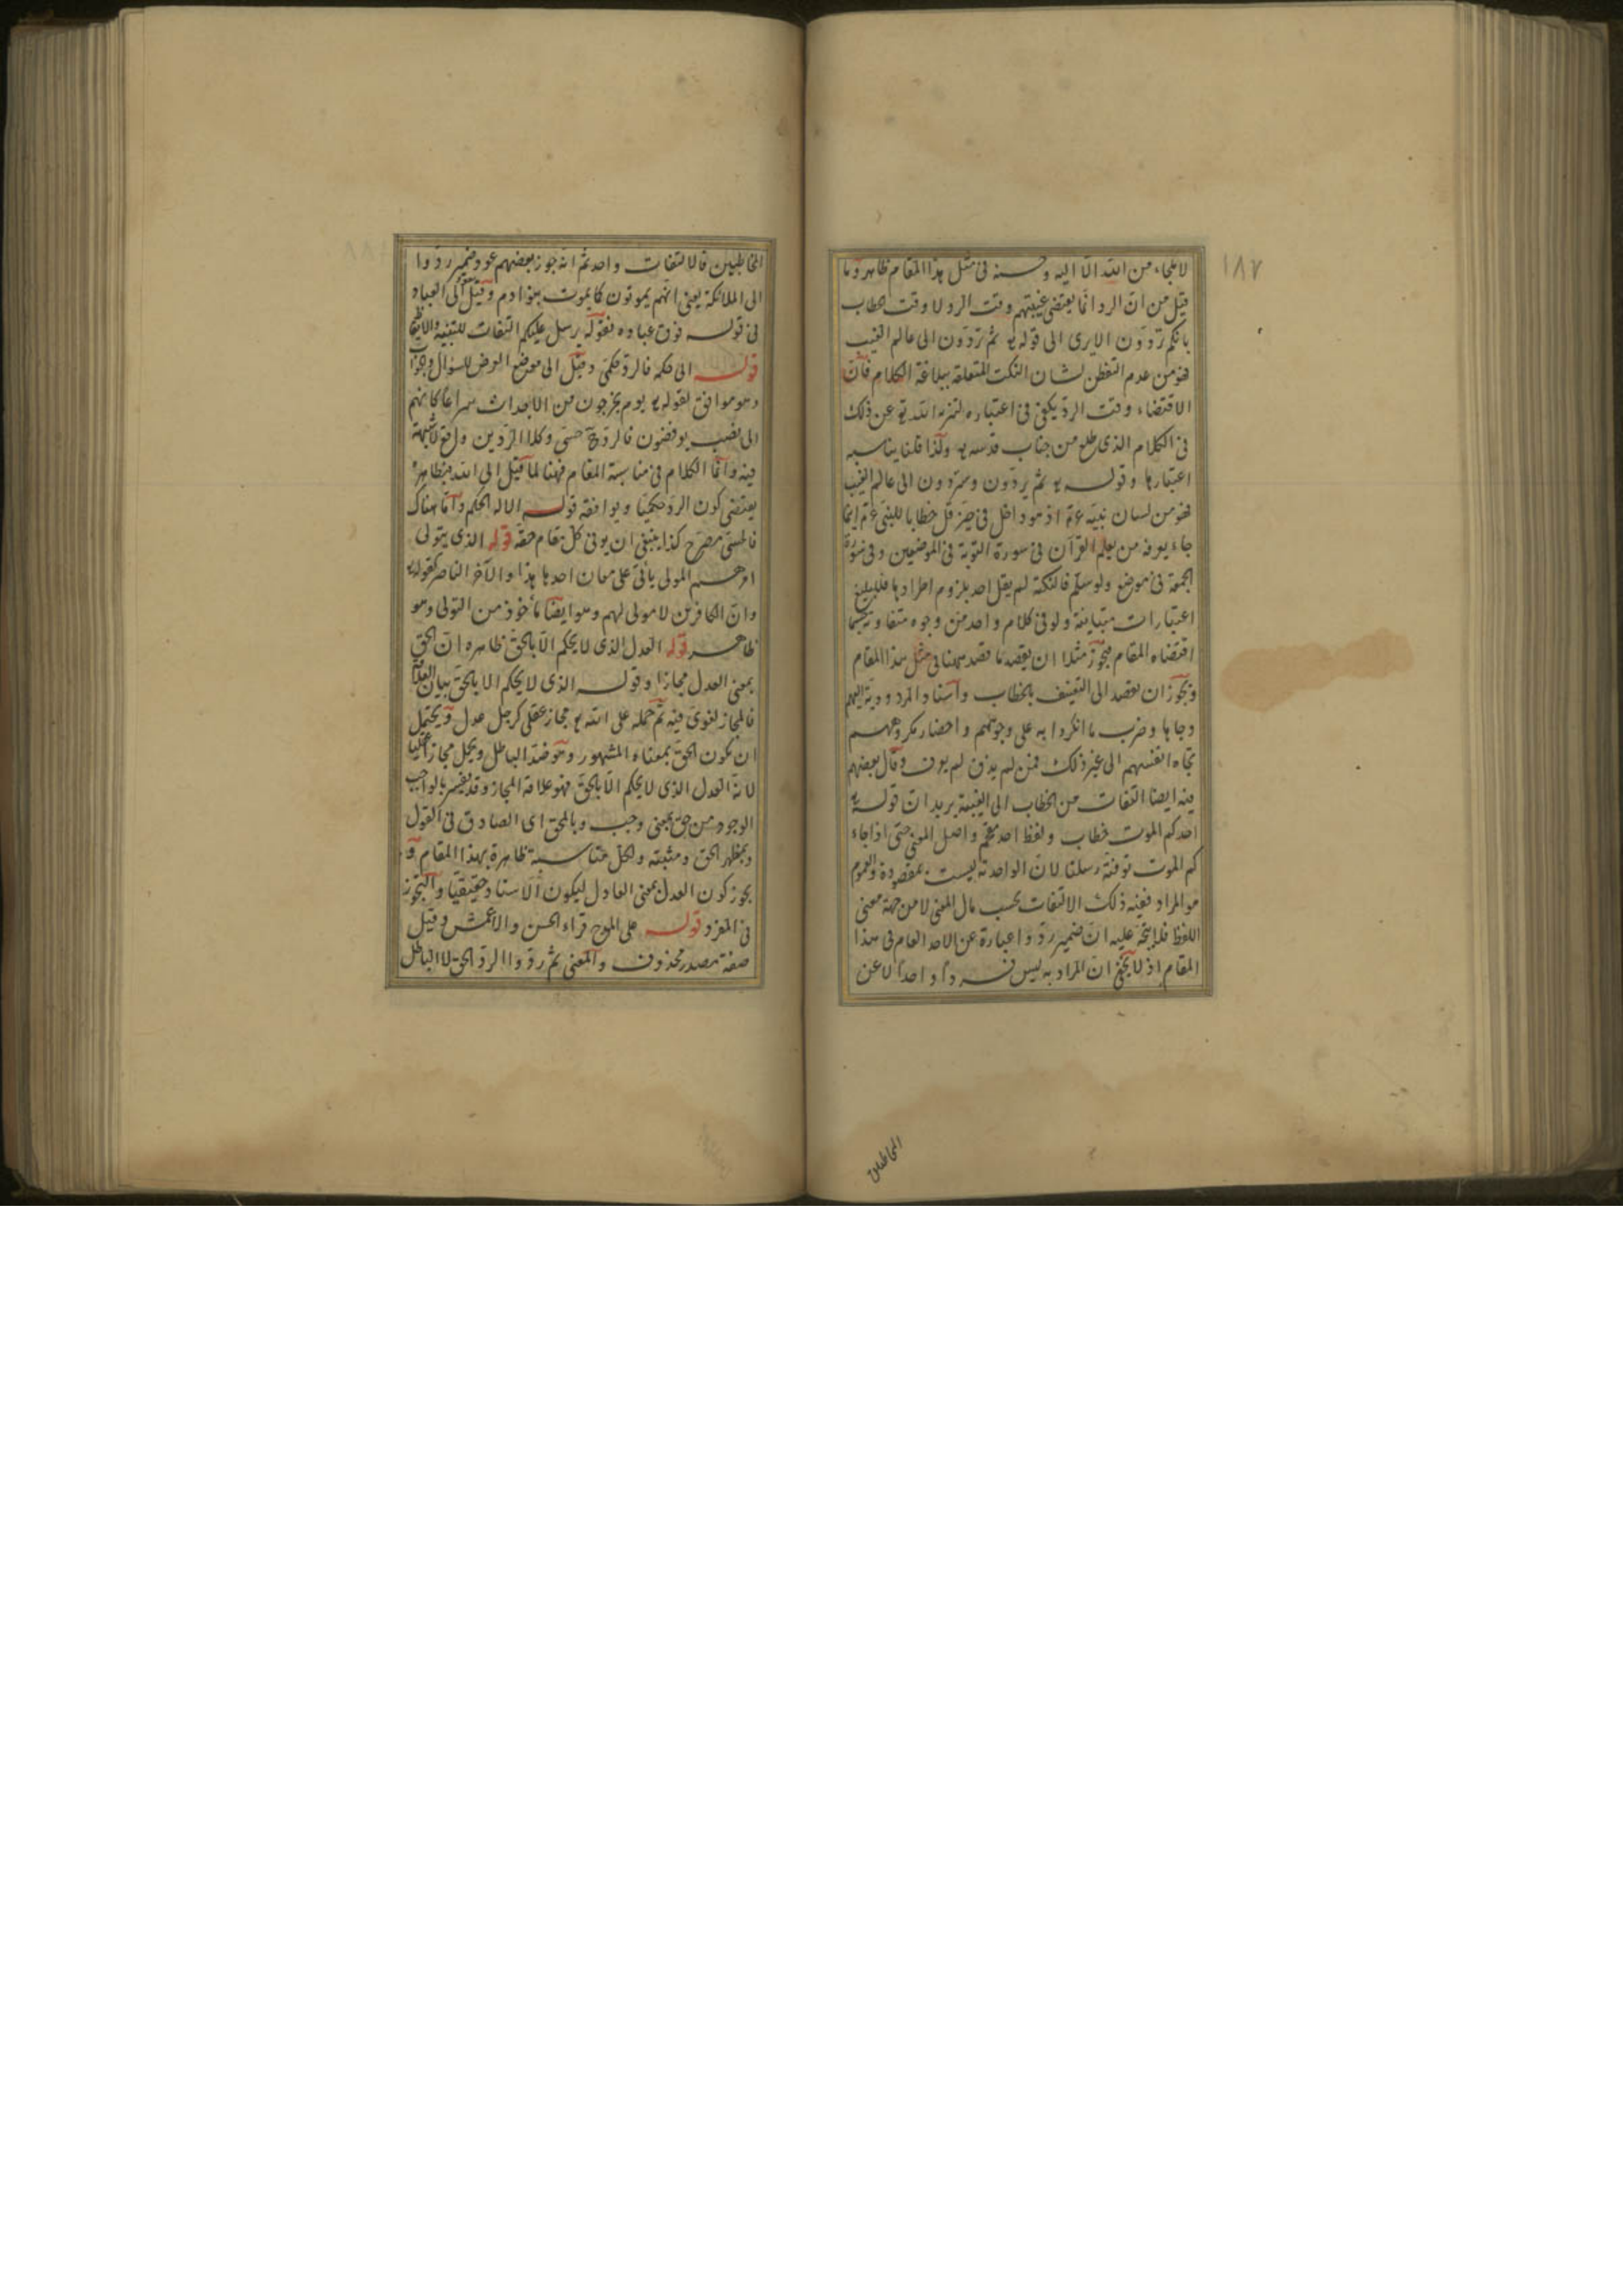 ١٨٧
لا ملجاء من الله الا اليه وحسنه فى مثل هذا المقام ظاهر وما
قيل من ان الرد انما يقتضى غيبتهم وقت الرد لا وقت الخطاب
بانكم تردون الا يرى الى قوله تع ثم تردون الى عالم الغيب
فهو من عدم التفطن لشان النكت المتعلقة ببلاغة الكلام فان
الاقتضاء وقت الرد يكفى فى اعتباره لتنزه الله تع عن ذلك
فى الكلام الذى طلع من جناب قدسه تع ولذا قلنا يناسبه
اعتبارها وقوله تع ثم يردون وستردون الى عالم الغيب
فهو من لسان نبيه عم اذ هو داخل فى حيز قل خطابا للنبى عم انما
جاء يعرفه من يعلم القرآن فى سورة التوبة فى الموضعين وفى سورة
الجمعة فى موضع ولو سلم فالنكتة لم يقل احد بلزوم اطرادها فللبليغ
اعتبارات متباينة ولو فى كلام واحد من وجوه متفاوتة حسبما
اقتضاه المقام فيجوز مثلا ان يقصد ما قصد ههنا فى مثل هذا المقام
ويجوز ان يقصد الى التعنيف بالخطاب واسناد المردودية اليهم
وجاها وضرب ما انكروا به على وجوههم واحضار مكروههم
تجاه انفسهم الى غير ذلك فمن لم يذق لم يعرف وقال بعضهم
فيه ايضا التفات من الخطاب الى الغيبة يريد ان قوله تع
احدكم الموت خطاب ولفظ احد مقحم واصل المعنى حتى اذا جاء
كم الموت توفته رسلنا لان الواحدية ليست بمقصودة والعموم
هو المراد ففيه ذلك الالتفات بحسب مال المعنى لا من جهة معنى
اللفظ فلا يتجه عليه ان ضمير ردوا عبارة عن الاحد العام فى هذا
المقام اذ لا يخفى ان المراد به ليس فردا واحدا لا عن
المخاطبين
المخاطبين فالالتفات واحد ثم انه جوز بعضهم عود ضمير ردوا
الى الملائكة يعنى انهم يموتون كما يموت بنو ادم وقيل الى العباد
فى قوله فوق عباده فقوله يرسل عليكم التفات للتنبيه والايقاظ
قوله الى حكمه فالرد حكمى وقيل الى موضع العرض للسؤال والجواب
وهو موافق لقوله تع يوم يخرجون من الاجداث سراعا كانهم
الى نصب يوفضون فالرد ح حسى وكلا الردين واقع لا شبهة
فيه وانما الكلام فى مناسبة المقام فههنا لما قيل الى الله فظاهره
يقتضى كون الرد حكميا ويوافقه قوله الا له الحكم واما هناك
فالحسى مصرح كذا ينبغى ان يوفى كل مقام حقه قوله الذى يتولى
امرهم المولى يأتى على معان احدها هذا والآخر الناصر كقوله تع
وان الكافرين لا مولى لهم وهو ايضا مأخوذ من التولى وهو
ظاهر قوله العدل الذى لا يحكم الا بالحق ظاهره ان الحق
بمعنى العدل مجازا وقوله الذى لا يحكم الا بالحق بيان العلاقة
فالمجاز لغوى فيه ثم حمله على الله تع مجاز عقلى كرجل عدل ويحتمل
ان يكون الحق بمعناه المشهور وهو ضد الباطل ويحمل مجازا عقليا
لانه العدل الذى لا يحكم الا بالحق فهو علاقة المجاز وقد يفسر بالواجب
الوجود من حق بمعنى وجب وبالمحق اى الصادق فى القول
وبمظهر الحق ومثبته والكل مناسبته ظاهرة بهذا المقام و
يجوز كون العدل بمعنى العادل ليكون الاسناد حقيقيا والتجوز
فى المفرد قوله على المدح قراءه الحسن والاعمش وقيل
صفة مصدر محذوف والمعنى ثم ردوا الرد الحق لا الباطل